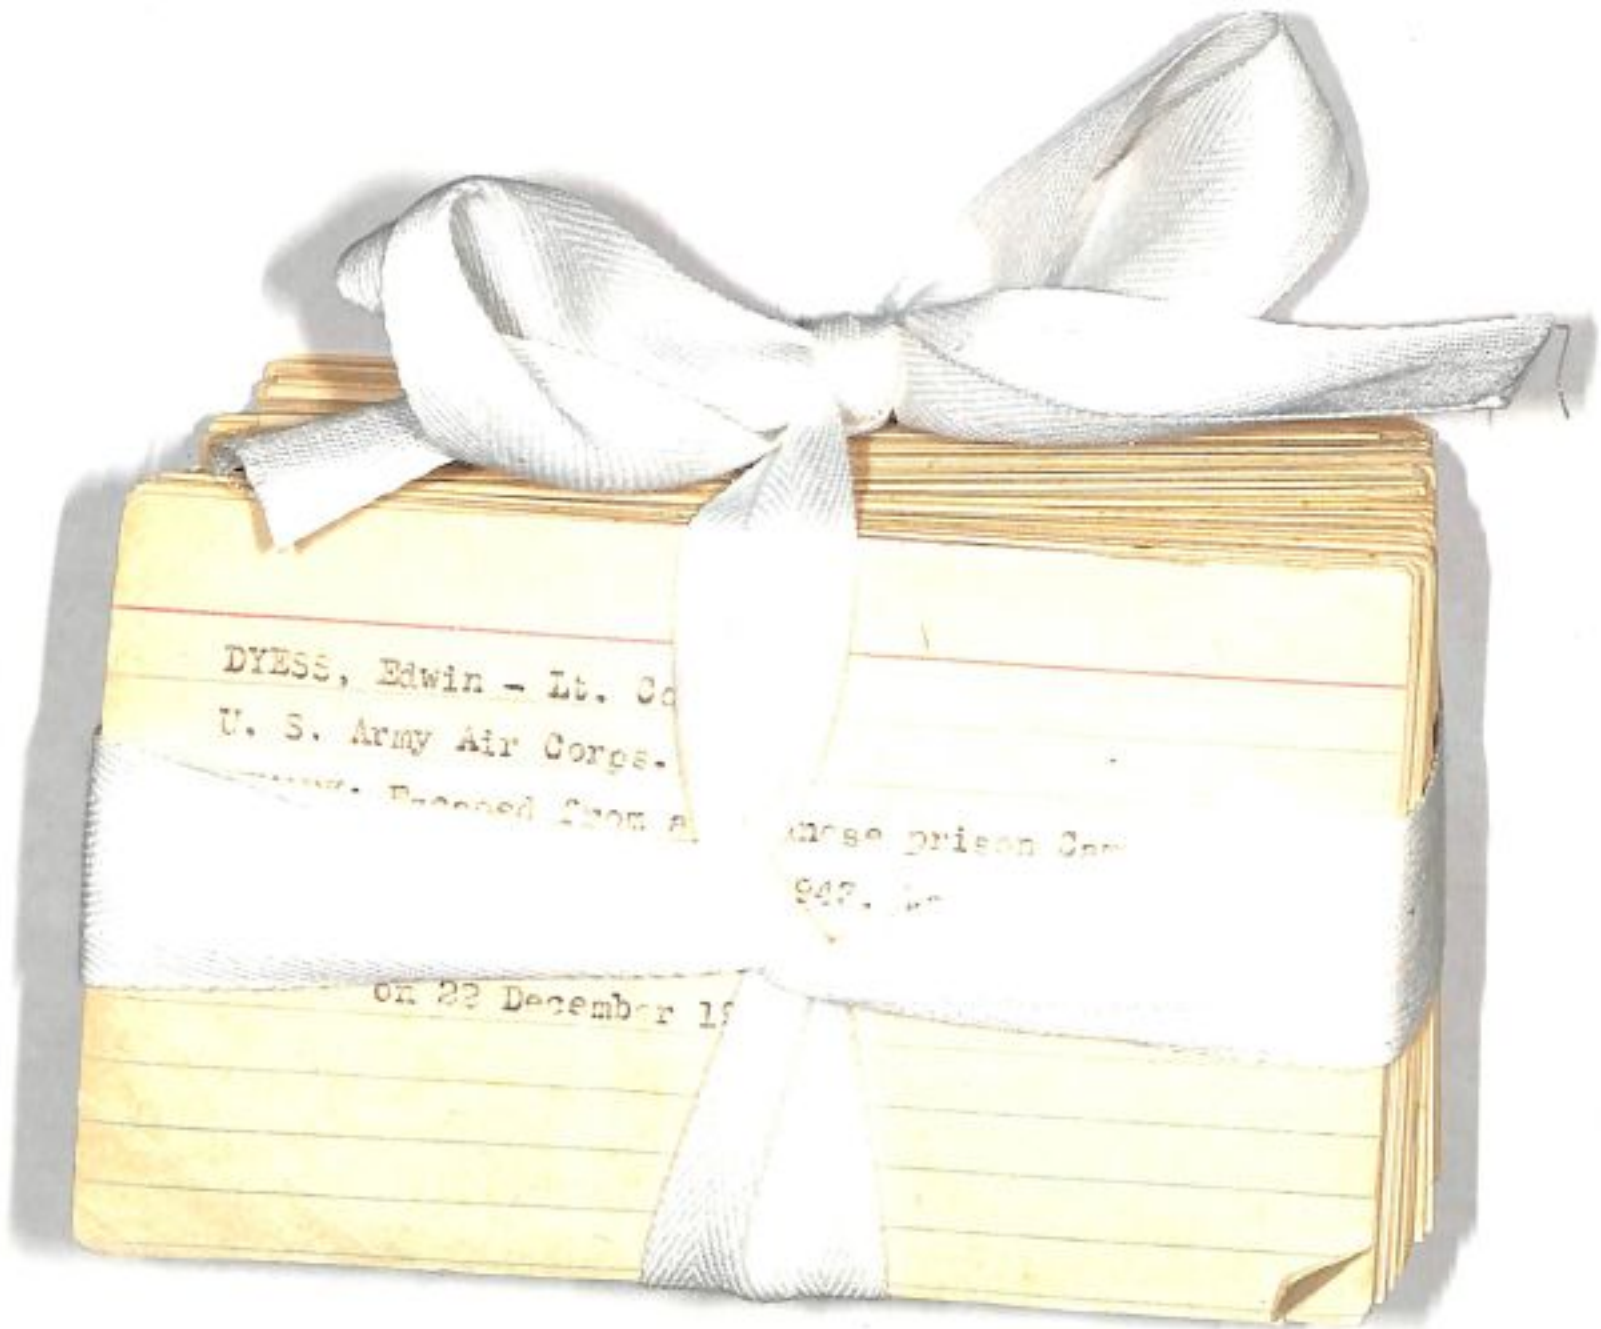 DYESS, Edwin - Lt. Co
U. S. Army Air Corps.
Escaped from a anese prison Cam
943.
on 22 December 19